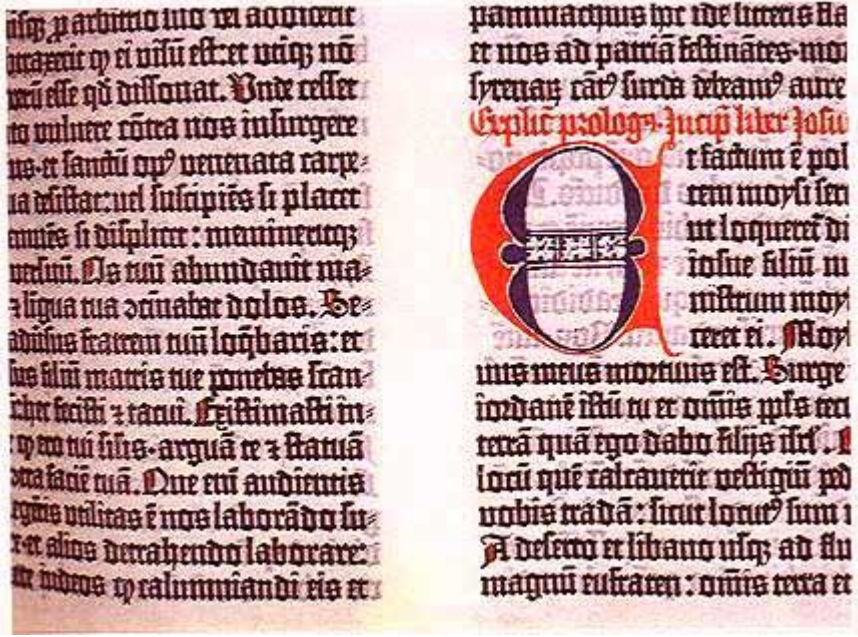 usqꝫ ꝓ arbitrio suo vel addiderit
ꝙ ei visū est: et utiqꝫ nō
verū esse qd̄ dissonat. Unde cesset
to vulnere cōtra nos insurgere
et sanctū opꝰ venenata carpe⸗
desistat: uel suscipiēs si placet
si displicet: memineritqꝫ
Os tuū abundauit ma⸗
⁊ ligua tua ↄcīnabat dolos. Se⸗
aduīsus fratrem tuū loq̄baris: et
filiū matris tue ponebas scan⸗
fecisti ⁊ tacui. Existimasti in⸗
ꝙ ero tui silis. arguā te ⁊ statuā
faciē tuā. Que eni audientis
utilitas ē nos laborādo su⸗
et alios detrahendo laborare:
iudeos ꝙ calumniandi eis et
pammachius
et nos ad patriā festinātes. mor
syrenaꝝ cātꝰ surda debeamꝰ aure
Explic̄ prologꝰ. Incip̄ liber Iosu
Et factum ē pos
tem moysi ser
ut loqueret̄ d
iosue filiū n
nistrum moy
ceret ei. Moy
uus meus mortuus est. Surge
iordanē istū tu et om̄is ppl̄s tec
terrā quā ego dabo filijs isrl̄.
Locū quē calcauerit vestigiū ped
vobis tradā: sicut locutꝰ sum
A deserto et libano usqꝫ ad flu
magnū eufraten: om̄is terra et